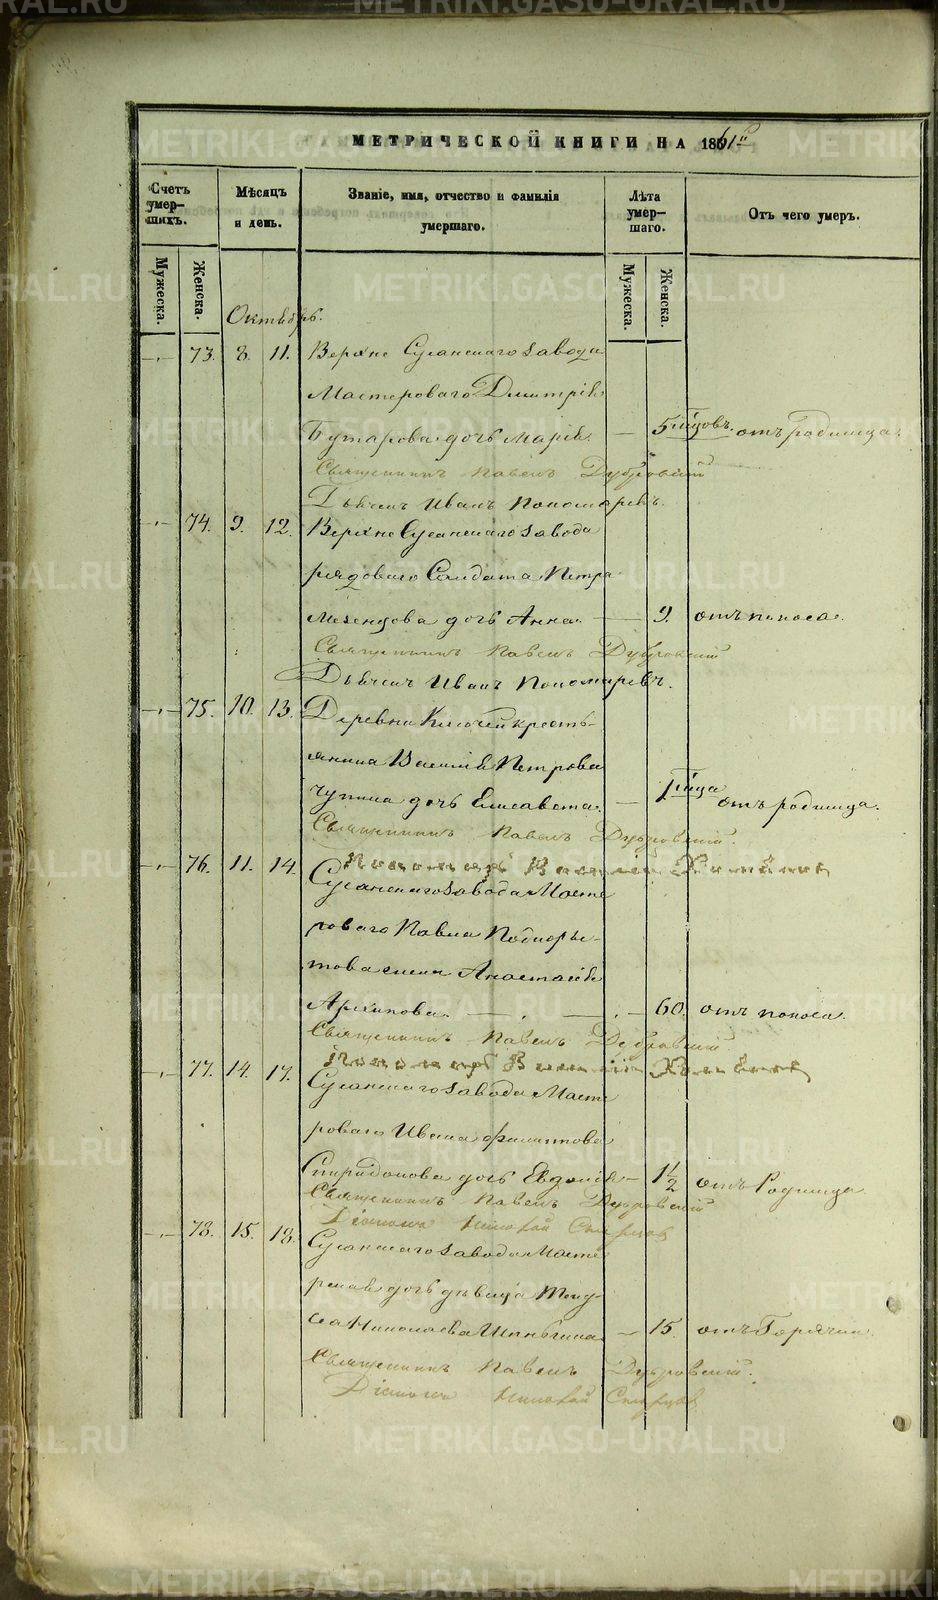 МЕТРИЧЕСКОЙ КНИГИ НА 1861й
Счетъ умер-шихъ.
Мѣсяцъ и день.
Званіе, имя, отчество и фамилія умершаго.
Лѣта умер-шаго.
Отъ чего умеръ.
Мужеска.
Женска.
Мужеска.
Женска.
Октябрь.
73. 8. 11. Верхне Сусанскаго завода
Мастероваго Димитрія
дочь Марія. — 5 мѣсяцовъ. отъ родимца.
Священникъ Павелъ Дубровскій
Дьячекъ Иванъ Пономаревъ.
74. 9. 12. Верхне Сусанскаго завода
рядоваго Солдата Петра
Мезенцова дочь Анна. — 9. отъ поноса.
Священникъ Павелъ Дубровскій
Дьячекъ Иванъ Пономаревъ.
75. 10. 13. Деревни Ключей кресть-
янина Василія Петрова
Чупина дочь Елисавета. — отъ родимца.
Священникъ Павелъ Дубровскій.
Пономарь Василій
76. 11. 14. Сусанскаго завода Масте
роваго Павла
това жена Анастасія
Архипова. — 60. отъ поноса.
Священникъ Павелъ Дубровскій
Пономарь Василій
77. 14. 17. Сусанскаго завода Масте
роваго Ивана Филиппова
Спиридонова дочь Евдокія — 1 1/2 отъ Родимца
Священникъ Павелъ Дубровскій
Діаконъ Николай
78. 15. 18. Сусанскаго завода Масте
дочь дѣвица
Николаева — 15. отъ Горячки.
Священникъ Павелъ Дубровскій.
Діаконъ Николай
METRIKI.GASO-URAL.RU